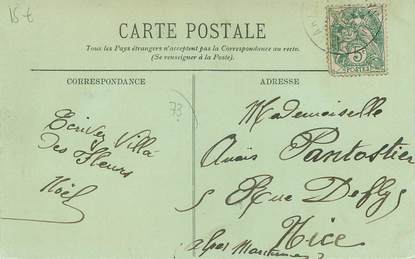 15 €
CARTE POSTALE
Tous les Pays étrangers n'acceptent pas la Correspondance au recto.
(Se renseigner à la Poste).
CORRESPONDANCE
ADRESSE
Ecrivez Villa
Des Fleurs
Noël
73
Mademoiselle
Anaïs Pantostier
5 Rue Defly
Nice
Alpes Maritimes
5
POSTES